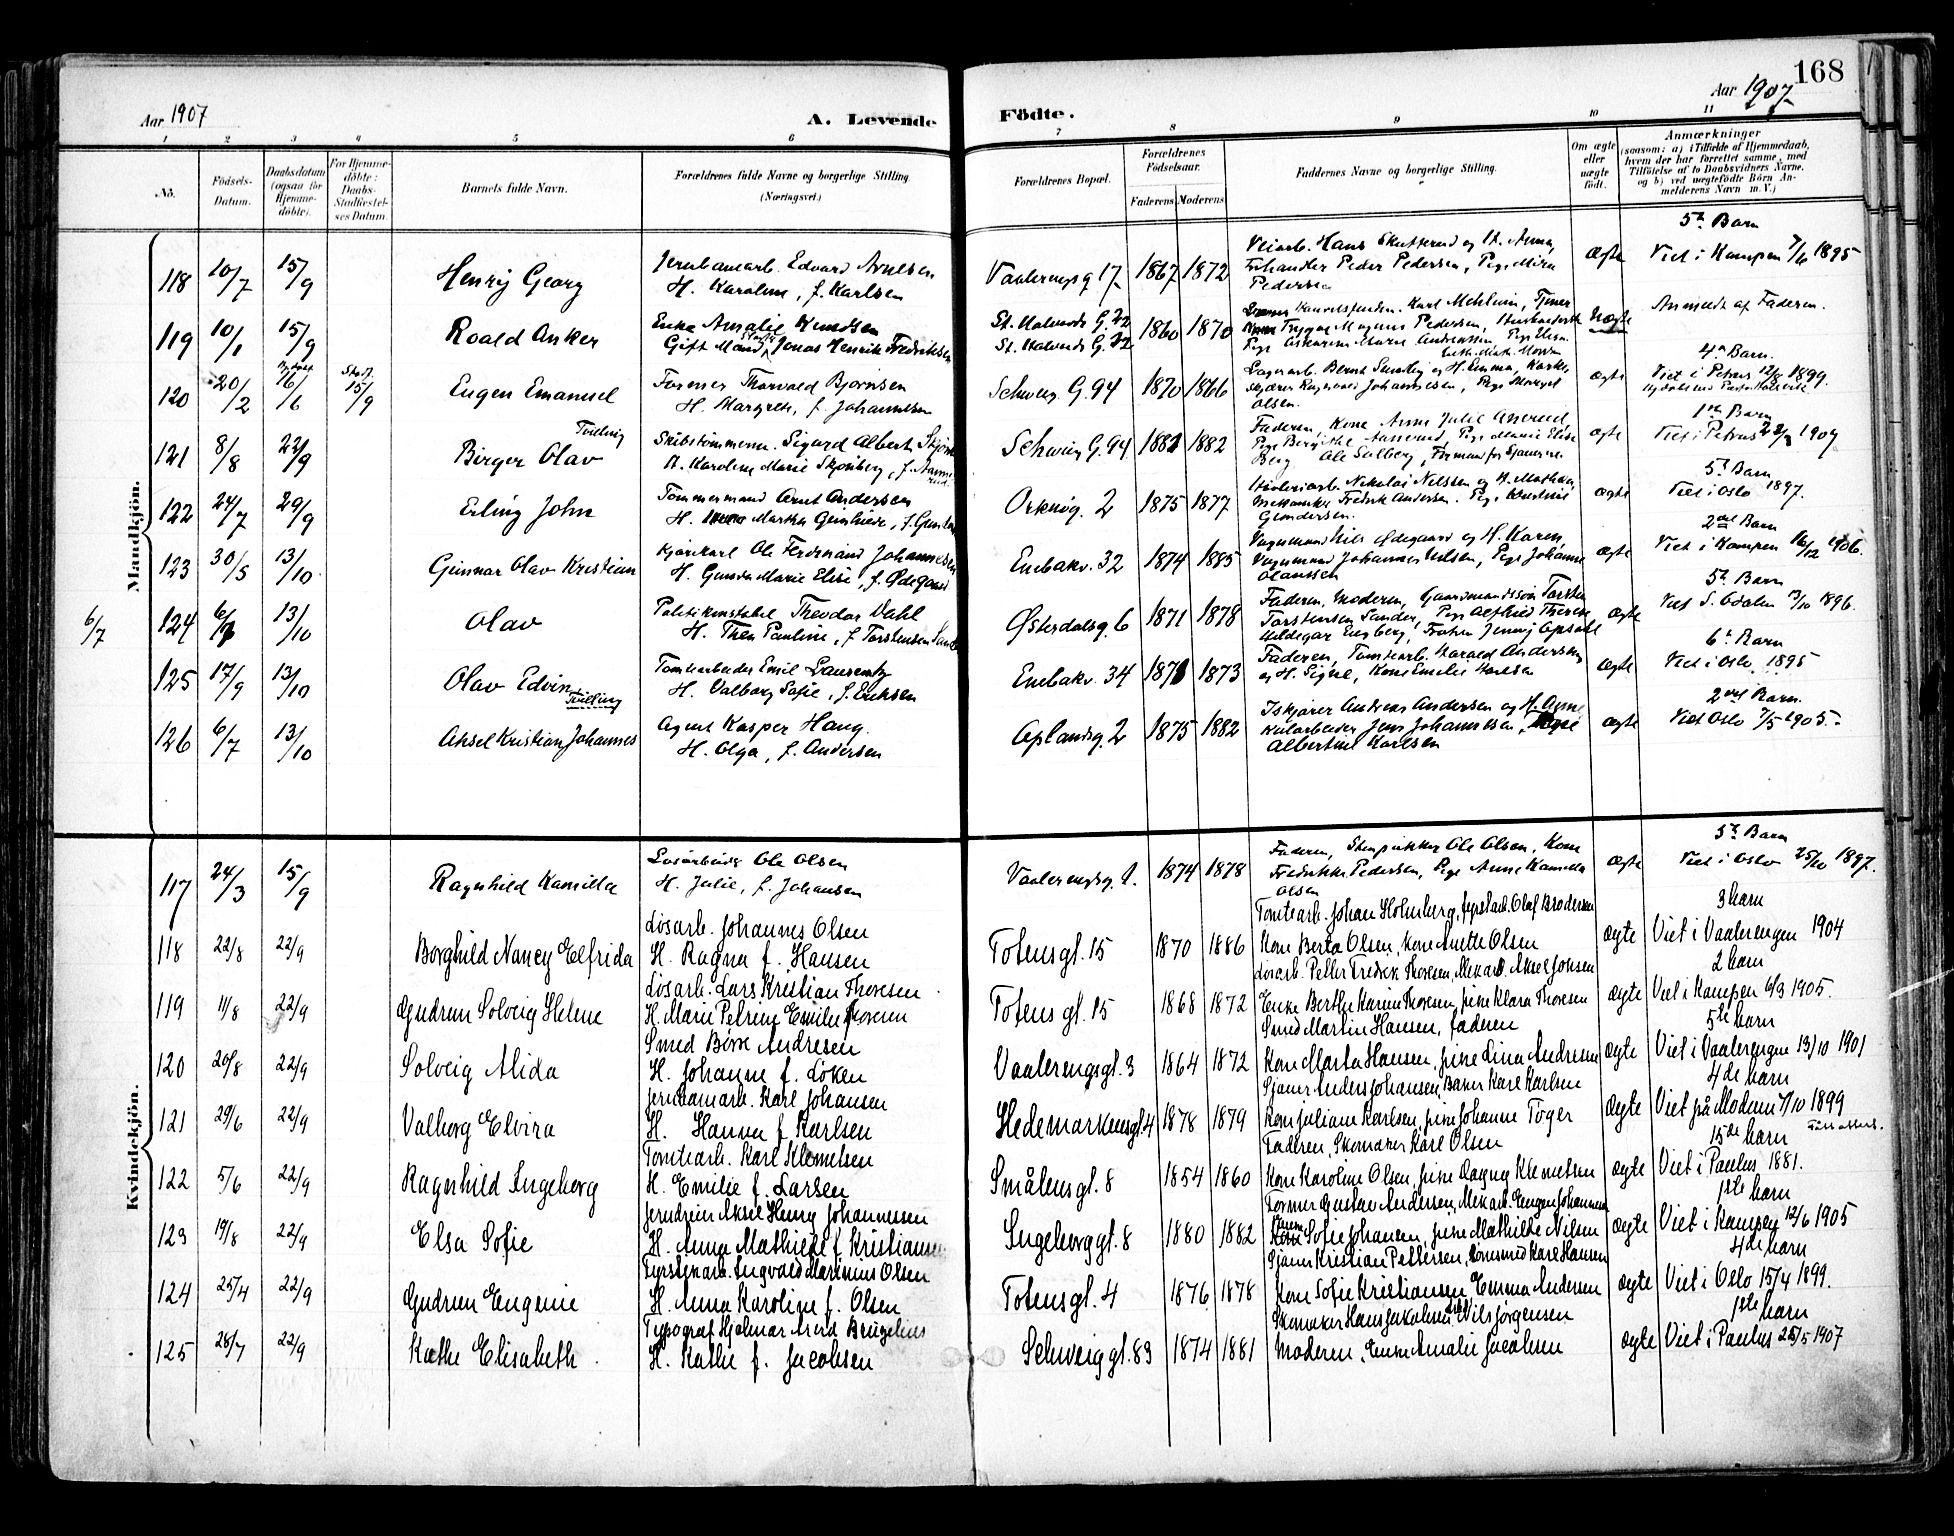 168
Aar 1907
A. Levende Födte.
Aar 1907
1 2 3 4 5 6 7 8 9 10 11
No.
Födsels-Datum.
Daabsdatum (ogsaa for Hjemmedöbte).
For Hjemmedöbte: Daabs-Stadfæstelses Datum.
Barnets fulde Navn.
Forældrenes fulde Navne og borgerlige Stilling (Næringsvei.)
Forældrenes Bopæl.
Forældrenes Födselsaar.
Faderens Moderens
Faddernes Navne og borgerlige Stilling.
Om ægte eller uægte födt.
Anmærkninger
(saasom: a) i Tilfælde af Hjemmedaab, hvem der har forrettet samme, med Tilföielse af to Daabsvidners Navne, og b) ved uægtefödte Börn Anmelderens Navn m. V.)
Mandkjön.
118 10/7 15/9 Henrij Georg
Jernbanearb. Edvard Arnesen
H. Karoline, f. Karlsen
Vaalerengsg 17 1867 1872
Veiarb. Hans Skutterud og H. Anna,
Frihandler Peder Pedersen, Pige Mira
Pedersen
ægte
5te Barn
Viet i Kampen 7/6 1895
119 10/1 15/9 Roald Anker
Enke Amalie Knudsen
Gift Mand Jonas Henrik Fredriksen
St. Halvards G. 22
St. Halvards G. 22
1860 1870
Uægte
Anmeldt af Faderen.
120 20/2 16/6 15/9 Eugen Emanuel
Formner Thorvald Bjørnsen
H. Margrete, f. Johannesen
Schweig. G. 94 1870 1866
Olsen.
ægte
4de Barn.
Viet i Petrus 12/8 1899.
121 8/8 22/9 Birger Olav
Tvilling
Skibstømmerm. Sigurd Albert
H. Karoline Marie Skjønberg, f.
Schweig G. 94 1882 1882
Faderen, Kone Anne Julie
Berg Ole Solberg, Formand for
ægte
1ste Barn
Viet i Petrus 22/3 1907
122 24/7 29/9 Erling John
Tømmermand Arnt Andersen
H. Martha
Orknøg. 2 1875 1877
Nikolai Nilssen og H. Mathea,
Mekaniker Fredrik Andersen. Pige Kristine
Gundersen.
ægte
5te Barn
Viet i Oslo 1897.
123 30/5 13/10 Gunnar Olav Kristian
Kjørekarl Ole Ferdinand Johannesen
H. Gunda Marie Elise, f. Ødegaard
Enebakv. 32 1874 1885
Vognmand Nils Ødegaard og H. Karen,
Vognmand Johannes Nilsen, Pige Johanne
Olaussen
ægte
2det Barn
Viet i Kampen 16/12 1906.
6/7
124 6/7 13/10 Olav
Politikonstabel Theodor Dahl
H. Thea Pauline, f. Torstensen
Østerdalsg. 6 1871 1878
Faderen, Moderen, Gaardmandssøn Torsten
Torstensen Sander, Pige Alfhild Therese
Hildegar Engberg, Frøken Jenny Opsahl
ægte
5te Barn
Viet S. Odalen 13/10 1896.
125 17/9 13/10 Olav Edvin
Tvilling
Tomtearbeider Emil Laurentz
H. Valborg Sofie, f. Eriksen
Enebakv. 34 1871 1873
Faderen, Tomtearb. Harald Andersen
og H. Signe, Kone Emilie Karlsen
ægte
6te Barn
Viet i Oslo 1895
126 6/7 13/10 Aksel Kristian Johannes
Agent Kasper Haug.
H. Olga, f. Andersen
Oplandsg. 2 1875 1882
Iskjører Andreas Andersen og H. Agne
Kularbeider Jens Johannessen, Pige
Albertine Karlsen
ægte
2det Barn.
Viet Oslo 7/5 1905.
Kvindekjön.
117 24/3 15/9 Ragnhild Kamilla
Løsarbeider Ole Olsen
H. Julie, f. Johansen
Vaalerengsg. 1. 1874 1878
Faderen, Stenpukker Ole Olsen, Kone
Fredrikke Pedersen, Pige Anne Kamilla
Olsen
ægte
5te Barn
Viet i Oslo 25/10 1897.
118 22/8 22/9 Borghild Nancy Elfrida
Løsarb. Johannes Olsen
H. Ragna f. Hansen
Totensgt. 15 1870 1886
Tomtearb. Johan Holmberg, fyrstikarb. Olaf Brodersen
Kone Berta Olsen, Kone Anette Olsen
ægte
3 barn
Viet i Vaalerengen 1904
119 11/8 22/9 Gudrun Solveig Helene
Løsarb. Lars Kristian Thoresen
H. Marie Petrine Emilie Thoresen
Totens gt. 15 1868 1872
Løsarb. Petter Fredrik Thoresen, Mek arb. Aksel Johsen
Enke Berthe Karine Thoresen, pike Klara Thoresen
ægte
2 barn
Viet i Kampen 6/3 1905.
120 20/8 22/9 Solveig Alida
Smed Børre Andresen
H. Johanne f. Løken
Vaalerengsgt. 3 1864 1872
Smed Martin Hansen, faderen
Kone Marta Hansen, pike Lina Andresen
ægte
5te barn
Viet i Vaalerengen 13/10 1901
121 29/6 22/9 Valborg Elvira
Jernbanearb. Karl Johansen
H. Hanna f. Karlsen
Hedemarkensgt. 4 1878 1879
Sjømr Anders Johansen, Baker Kare Karlsen
Kone Juliane Karlsen, pike Johanne Toger
ægte
4de barn
Viet på Modum 7/10 1899
122 5/6 22/9 Ragnhild Ingeborg
Tomtearb. Karl Klemetsen
H. Emilie f. Larsen
Smålensgt. 8 1854 1860
Faderen, Skomaker Karl Olsen
Kone Karoline Olsen, pike Dagny Klemetsen
ægte
15de barn
Viet i Paulus 1881.
123 19/8 22/9 Elsa Sofie
Jerndreier Aksel Henry Johannessen
H. Anna Mathilde f. Kristiansen
Ingeborggt. 8 1880 1882
Former Gustav Andersen, Mek arb. Eugen Johannesen
Sofie Johansen, pike Mathilde Nilsen
ægte
1ste barn
Viet i Kampen 12/6 1905
124 25/4 22/9 Gudrun Eugenie
Fyrstikarb. Ingvald Marinius Olsen
H. Anna Karoline f. Olsen
Totensgt. 4 1876 1878
Sjømr Kristian Pettersen, Kone Kare Hansen
Kone Sofie Kristiansen, Emma Andersen
ægte
4de barn
Viet i Oslo 15/4 1899.
125 28/7 22/9 Kathe Elisabeth
Typograf Hjalmar Bruzelius
H. Kathe f. Jacobsen
Schweiggt. 83 1874 1881
Skomaker Hans Jakobsen, Nils Jørgensen
Moderen, Enke Amalie Jacobsen
ægte
1ste barn
Viet i Paulus 25/5 1907